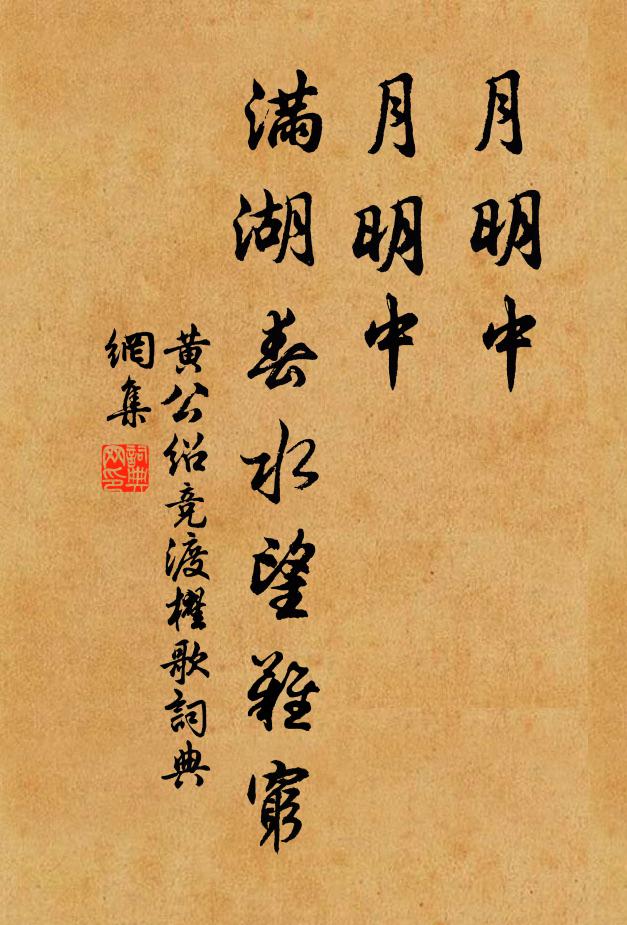 月明中
月明中
满湖春水望難窮
黄公绍竞渡櫂歌詞典
網集
詞典
网印